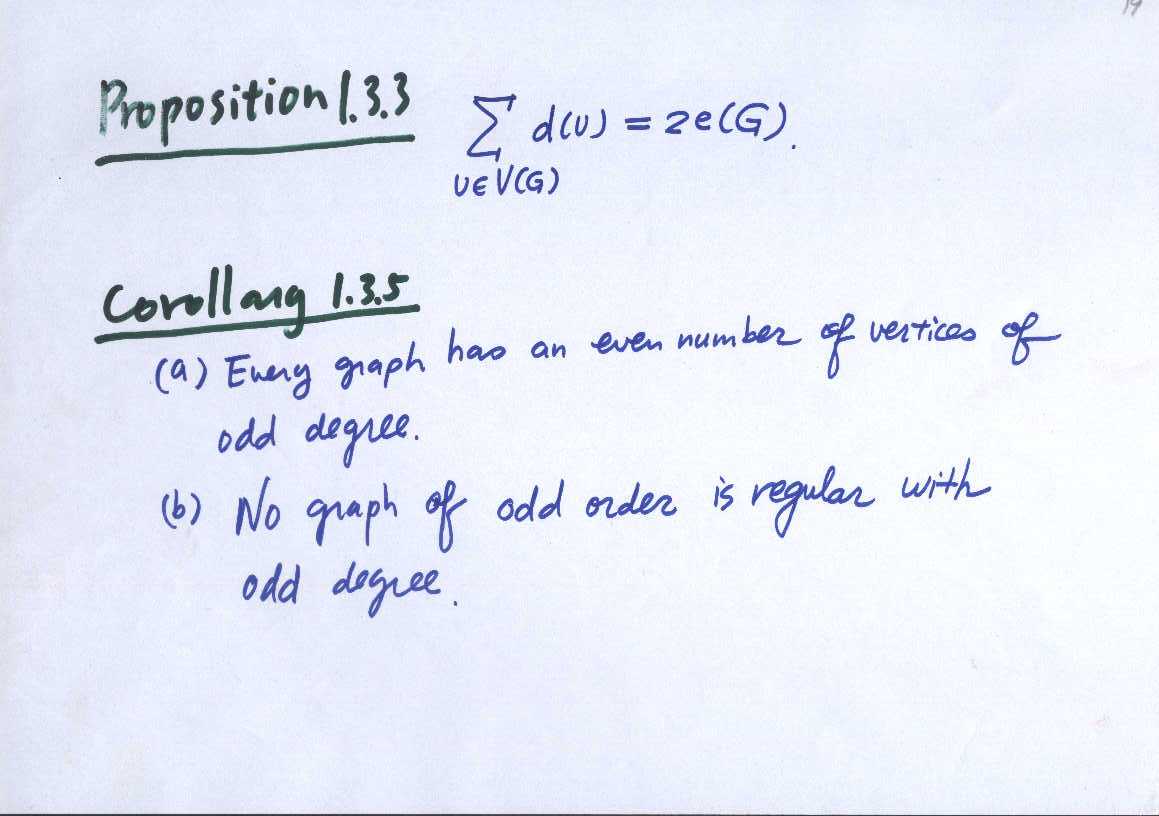 19
Proposition 1.3.3
∑ d(v) = 2e(G).
v∈V(G)
Corollary 1.3.5
(a) Every graph has an even number of vertices of
odd degree.
(b) No graph of odd order is regular with
odd degree.